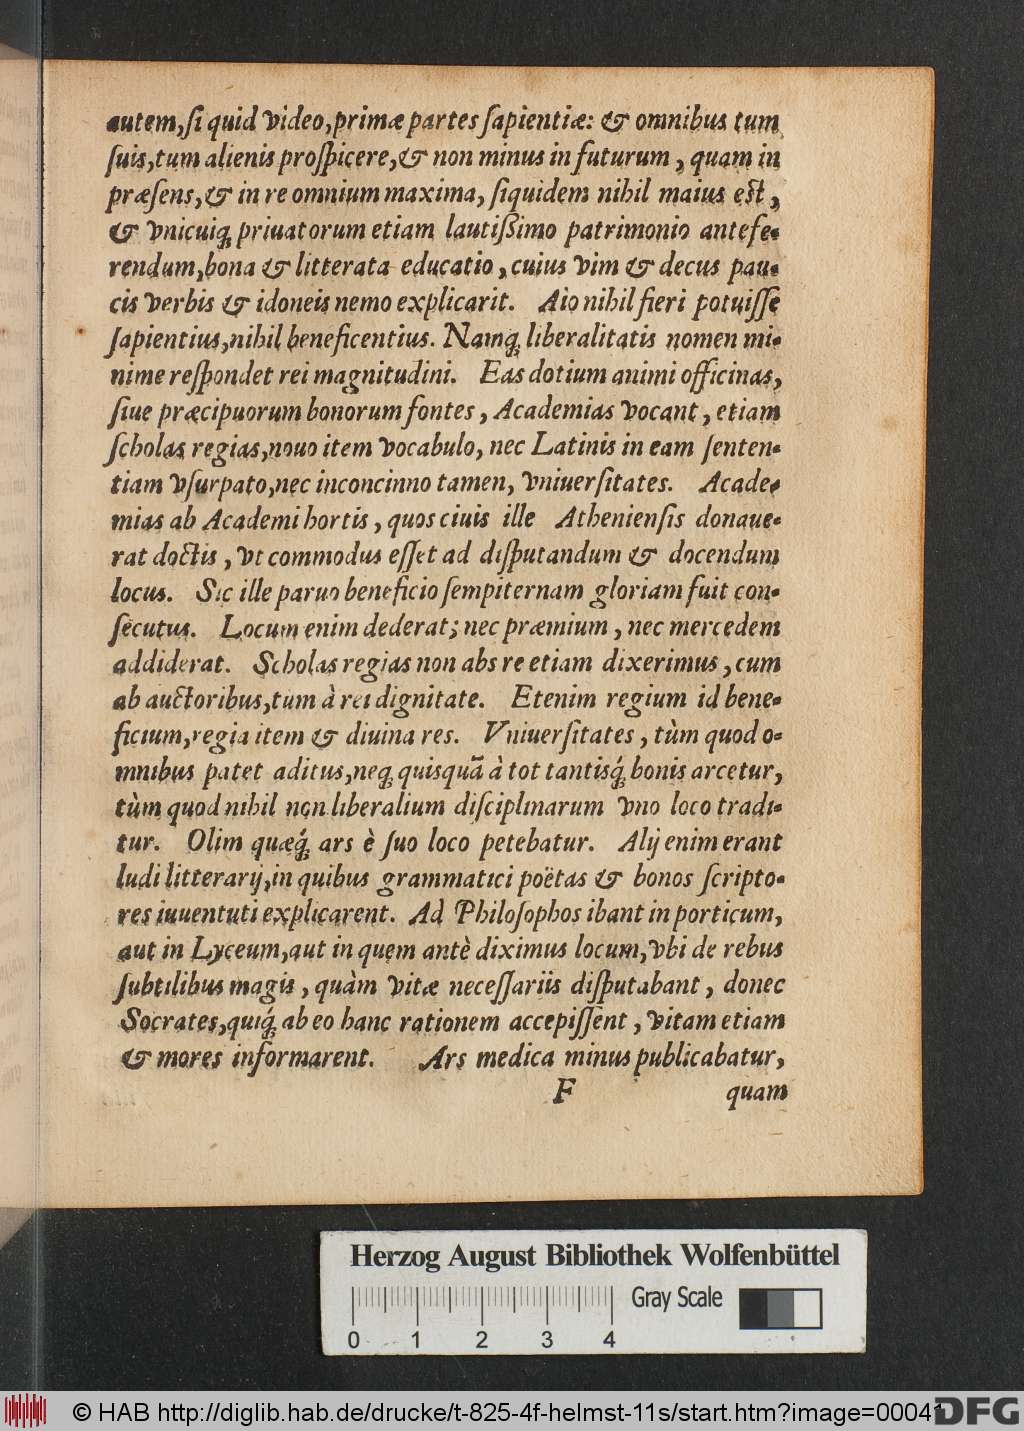 autem,ſi quid video,primæ partes ſapientiæ: & omnibus tum
ſuis,tum alienis proſpicere,& non minus in futurum, quam in
præſens,& in re omnium maxima, ſiquidem nihil maius eſt,
& vnicuiq́ue priuatorum etiam lautißimo patrimonio antefe-
rendum,bona & litterata educatio, cuius vim & decus pau-
cis verbis & idoneis nemo explicarit. Aio nihil fieri potuiſſe
ſapientius,nihil beneficentius. Namq́; liberalitatis nomen mi-
nime reſpondet rei magnitudini. Eas dotium animi officinas,
ſiue præcipuorum bonorum fontes, Academias vocant, etiam
ſcholas regias,nouo item vocabulo, nec Latinis in eam ſenten-
tiam vſurpato,nec inconcinno tamen, vniuerſitates. Acade-
mias ab Academi hortis, quos ciuis ille Athenienſis donaue-
rat doctis, vt commodus eſſet ad diſputandum & docendum
locus. Sic ille paruo beneficio ſempiternam gloriam fuit con-
ſecutus. Locum enim dederat; nec præmium, nec mercedem
addiderat. Scholas regias non abs re etiam dixerimus, cum
ab auctoribus,tum à rei dignitate. Etenim regium id bene-
ficium,regia item & diuina res. Vniuerſitates, tùm quod o-
mnibus patet aditus,neq; quisquã à tot tantisq́; bonis arcetur,
tùm quod nihil non liberalium diſciplinarum vno loco tradi-
tur. Olim quæq́; ars è ſuo loco petebatur. Alij enim erant
ludi litterarij,in quibus grammatici poëtas & bonos ſcripto-
res iuuentuti explicarent. Ad Philoſophos ibant in porticum,
aut in Lyceum,aut in quem antè diximus locum,vbi de rebus
ſubtilibus magis, quàm vitæ neceſſariis diſputabant, donec
Socrates,quiq́; ab eo hanc rationem accepiſſent, vitam etiam
& mores informarent. Ars medica minus publicabatur,
F quam
Herzog August Bibliothek Wolfenbüttel
0 1 2 3 4 Gray Scale
© HAB http://diglib.hab.de/drucke/t-825-4f-helmst-11s/start.htm?image=00041
DFG